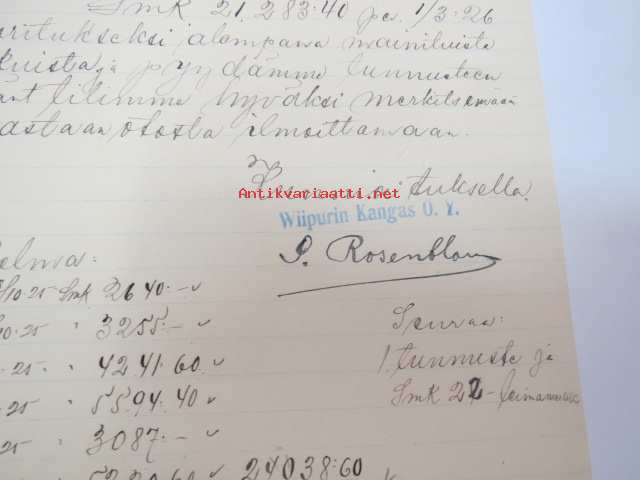 Smk 21.283:40 per 1/3-26
aritukseksi alempana mainituista
kuista ja pyydämme tunnusteen
tilimme hyväksi merkitsemään
astaan otosta ilmoittamaan.
Kunnioituksella.
Antikvariaatti.net
Wiipurin Kangas O. Y.
S. Rosenblom
elma:
/10-25 Smk 2640:-
10-25 " 3255:-
-25 " 4241.60
-25 " 5594.40
-25 " 3087:-
24038:60
Seuraa:
1 tunnuste ja
Smk 22-